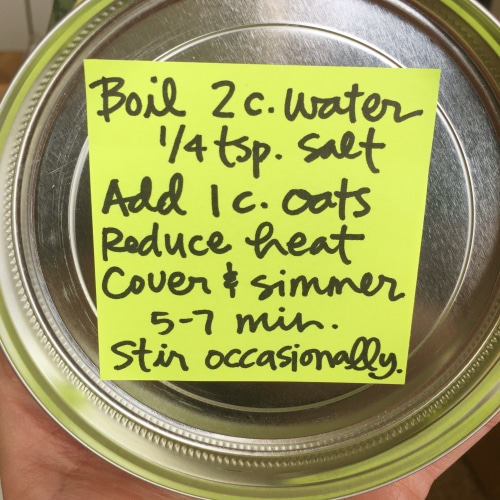 Boil 2 c. water
1/4 tsp. salt
Add 1 c. oats
Reduce heat
Cover & simmer
5-7 min.
Stir occasionally.